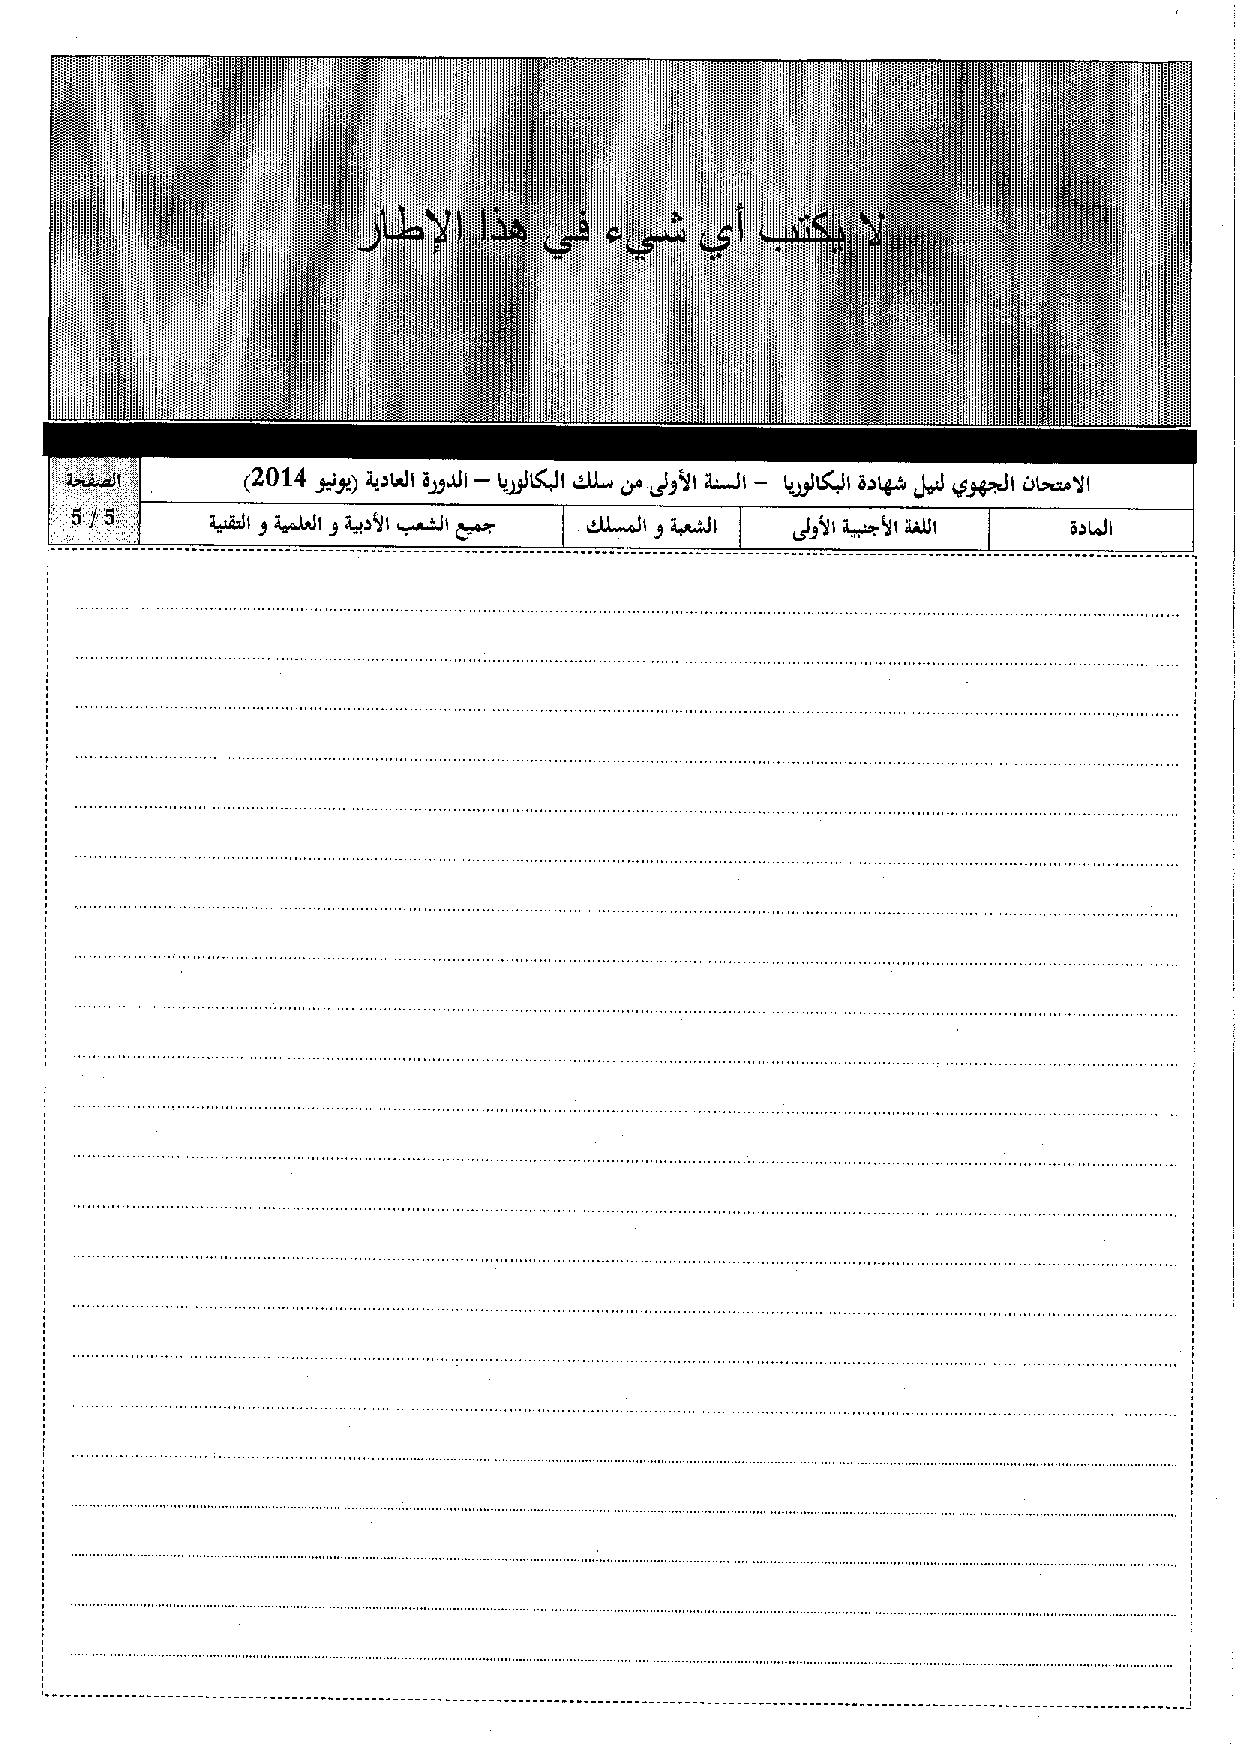 لا يكتب أي شيء في هذا الإطار
الامتحان الجهوي لنيل شهادة البكالوريا - السنة الأولى من سلك البكالوريا – الدورة العادية (يونيو 2014)
الصفحة
5 / 5
المادة
اللغة الأجنبية الأولى
الشعبة و المسلك
جميع الشعب الأدبية و العلمية و التقنية